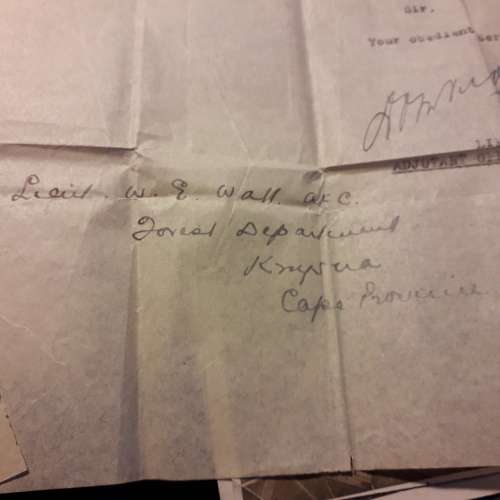 Sir,
Your obedient
ADJUTANT GE
Lieut. W. E. Wall. M.C.
Forest Department
Knysna
Cape Province